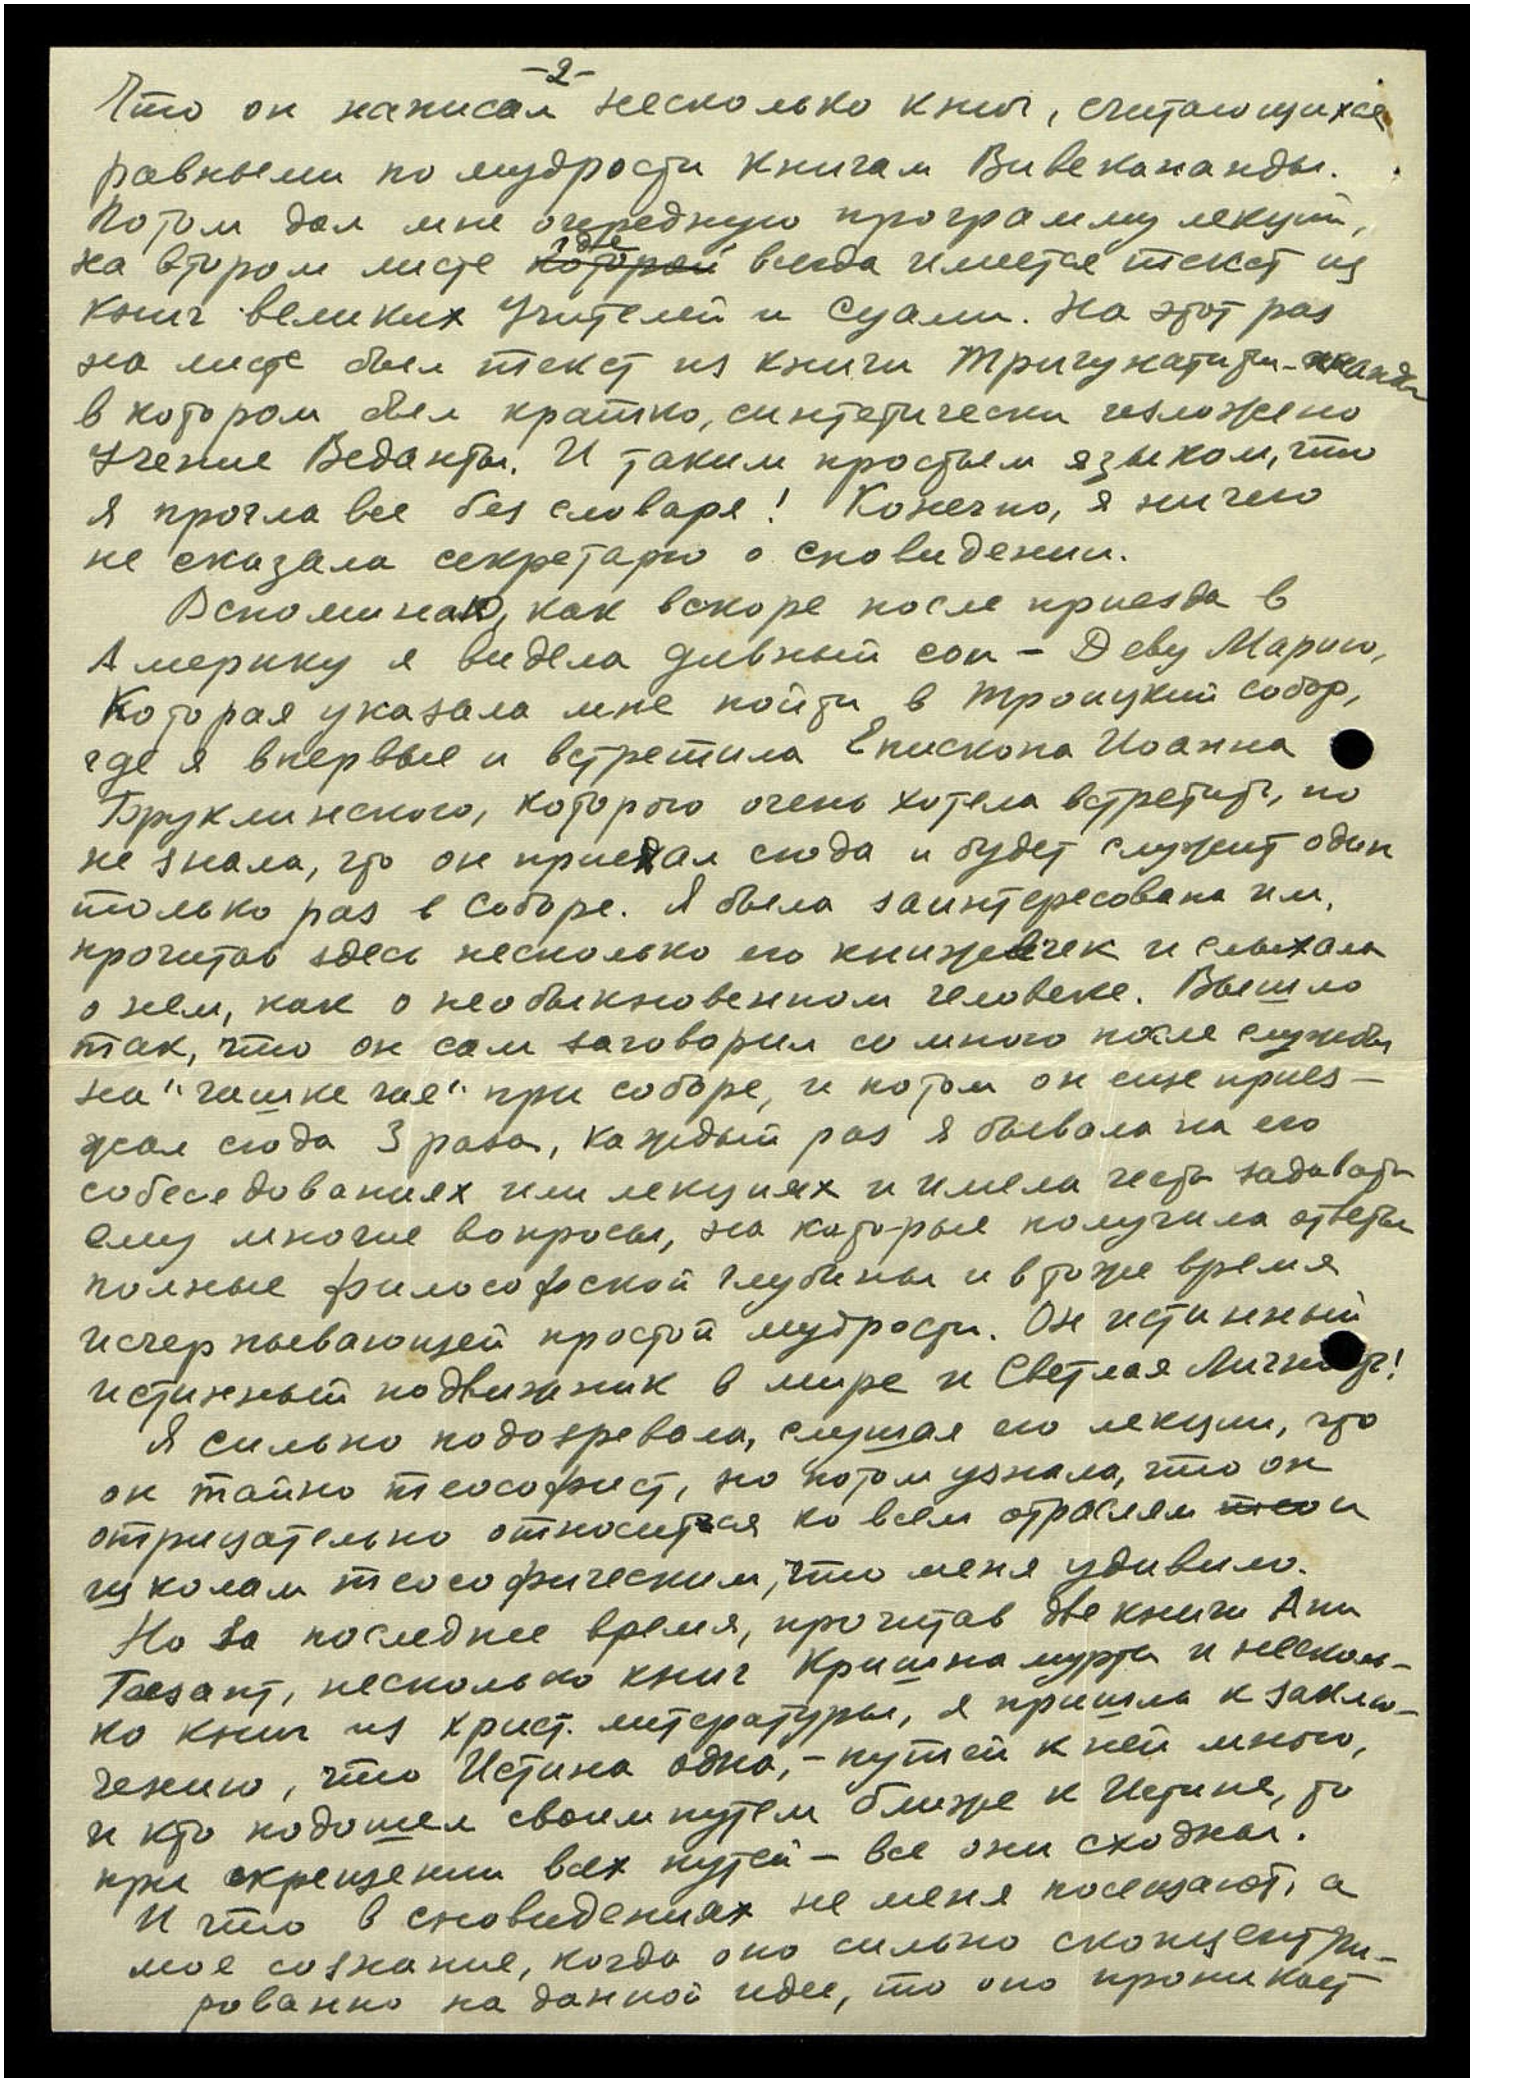 -2-
Что он написал несколько книг, считающихся
равными по мудрости книгам Вивекананды.
Потом дал мне очередную программу лекций,
на втором листе где всегда имеется текст из
книг великих Учителей и Суами. На этот раз
на листе был текст из книги Тригунатити-нанды
в котором был кратко, синтетически изложено
Учение Веданты. И таким простым языком, что
я прочла все без словаря! Конечно, я ничего
не сказала секретарю о сновидении.
Вспоминаю, как вскоре после приезда в
Америку я видела дивный сон – Деву Марию,
Которая указала мне пойти в Троицкий собор,
где я впервые и встретила Епископа Иоанна
Бруклинского, которого очень хотела встретить, но
не знала, что он приехал сюда и будет служит один
только раз в Соборе. Я была заинтересована им,
прочитав здесь несколько его книжечек и слыхала
о нем, как о необыкновенном человеке. Вышло
так, что он сам заговорил со мною после службы
на "чашке чая" при соборе, и потом он еще приез-
жал сюда 3 раза, каждый раз я бывала на его
собеседованиях или лекциях и имела честь задавать
ему многие вопросы, на которые получила ответы
полные философской глубины и в тоже время
исчерпывающей простой мудрости. Он истинный
истинный подвижник в мире и Светлая Личность!
Я сильно подозревала, слушая его лекции, что
он тайно теософист, но потом узнала, что он
отрицательно относится ко всем отраслям и
школам теософическим, что меня удивило.
Но за последнее время, прочитав две книги Анни
Безант, несколько книг Кришнамурти и несколь-
ко книг из христ. литературы, я пришла к заклю-
чению, что Истина одна, – путей к ней много,
и кто подошел своим путем ближе к Истине, то
при скрещении всех путей – все они сходны.
И что в сновидениях не меня посещают, а
мое сознание, когда оно сильно сконцентри-
рованно на данной идее, то оно проникает